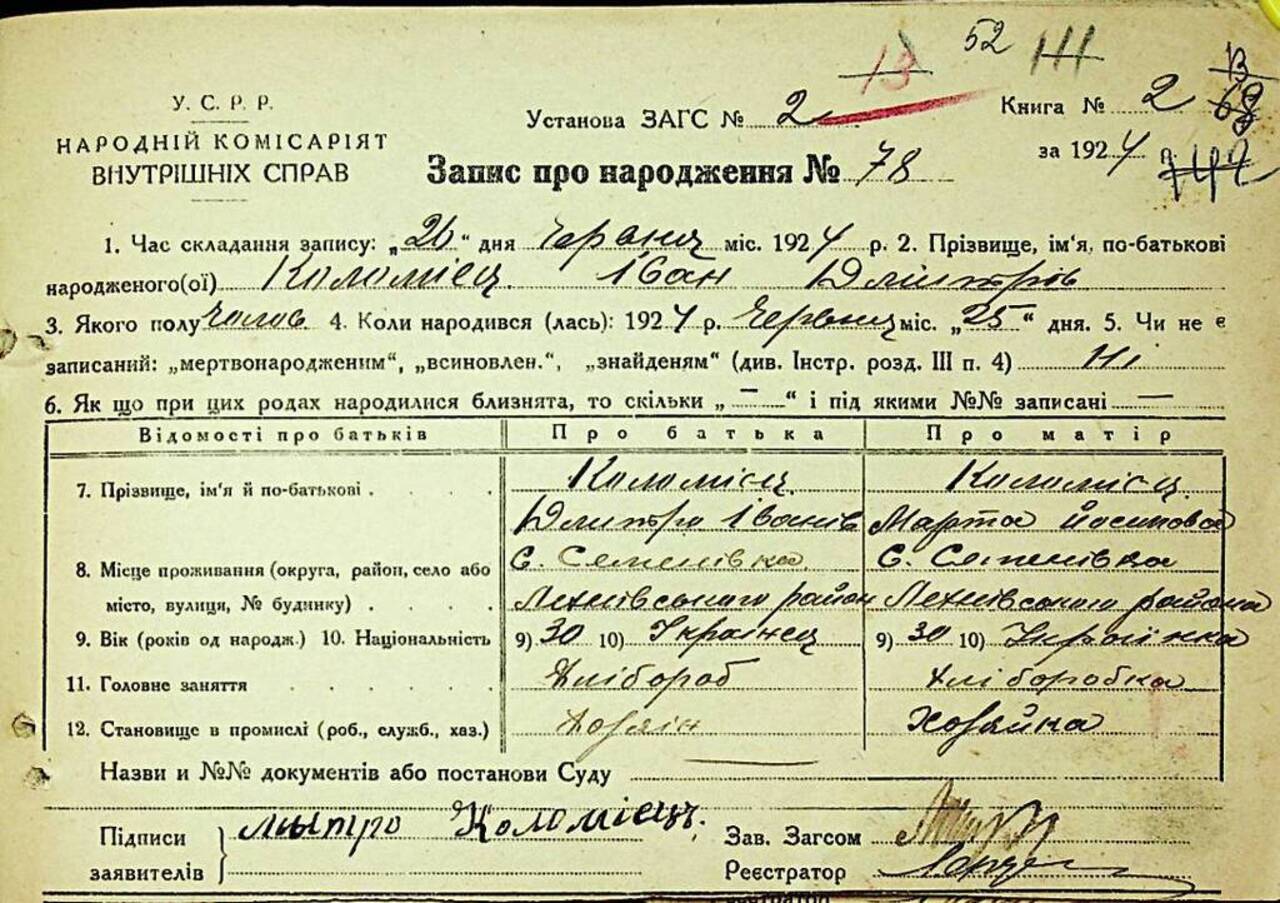 52 III
13
У. С. Р. Р.
Установа ЗАГС № 2
Книга № 2
13
68
НАРОДНІЙ КОМІСАРІЯТ
ВНУТРІШНІХ СПРАВ
за 1924
747
Запис про народження № 78
1. Час складання запису: „26“ дня Червня міс. 1924 р. 2. Прізвище, ім'я, по-батькові
народженого(ої) Коломієц Іван Дмитрів
3. Якого полу Чолов 4. Коли народився (лась): 1924 р. Червня міс. „25“ дня. 5. Чи не є
записаний: „мертвонародженим“, „всиновлен.“, „знайденям“ (див. Інстр. розд. III п. 4) Ні
6. Як що при цих родах народилися близнята, то скільки „ — “ і під якими №№ записані —
Відомості про батьків Про батька Про матір
7. Прізвище, ім'я й по-батькові Коломієц Коломієц
Дмитро Іванів Марта Йосипова
8. Місце проживання (округа, район, село або С. Семенівка С. Семенівка
місто, вулиця, № будинку) район района
9. Вік (років од народж.) 10. Національність 9) 30 10) Українец 9) 30 10) Українка
11. Головне заняття Хлібороб Хліборобка
12. Становище в промислі (роб., служб., хаз.) Хозяін Хозяйка
Назви и №№ документів або постанови Суду —
Підписи Митро Коломієць. Зав. Загсом
заявителів Реєстратор